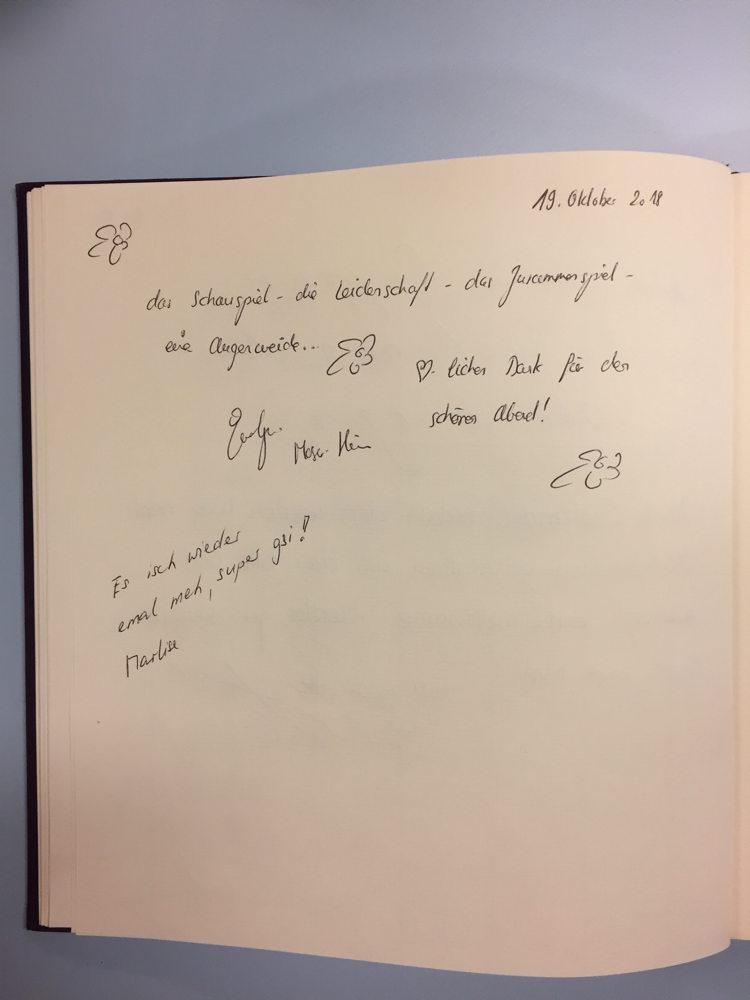 19. Oktober 2018
das Schauspiel - die Leidenschaft - das Zusammenspiel -
eine Augenweide...
♡-licher Dank für den
schönen Abend!
Es isch wieder
emal meh, super gsi!
Marlise